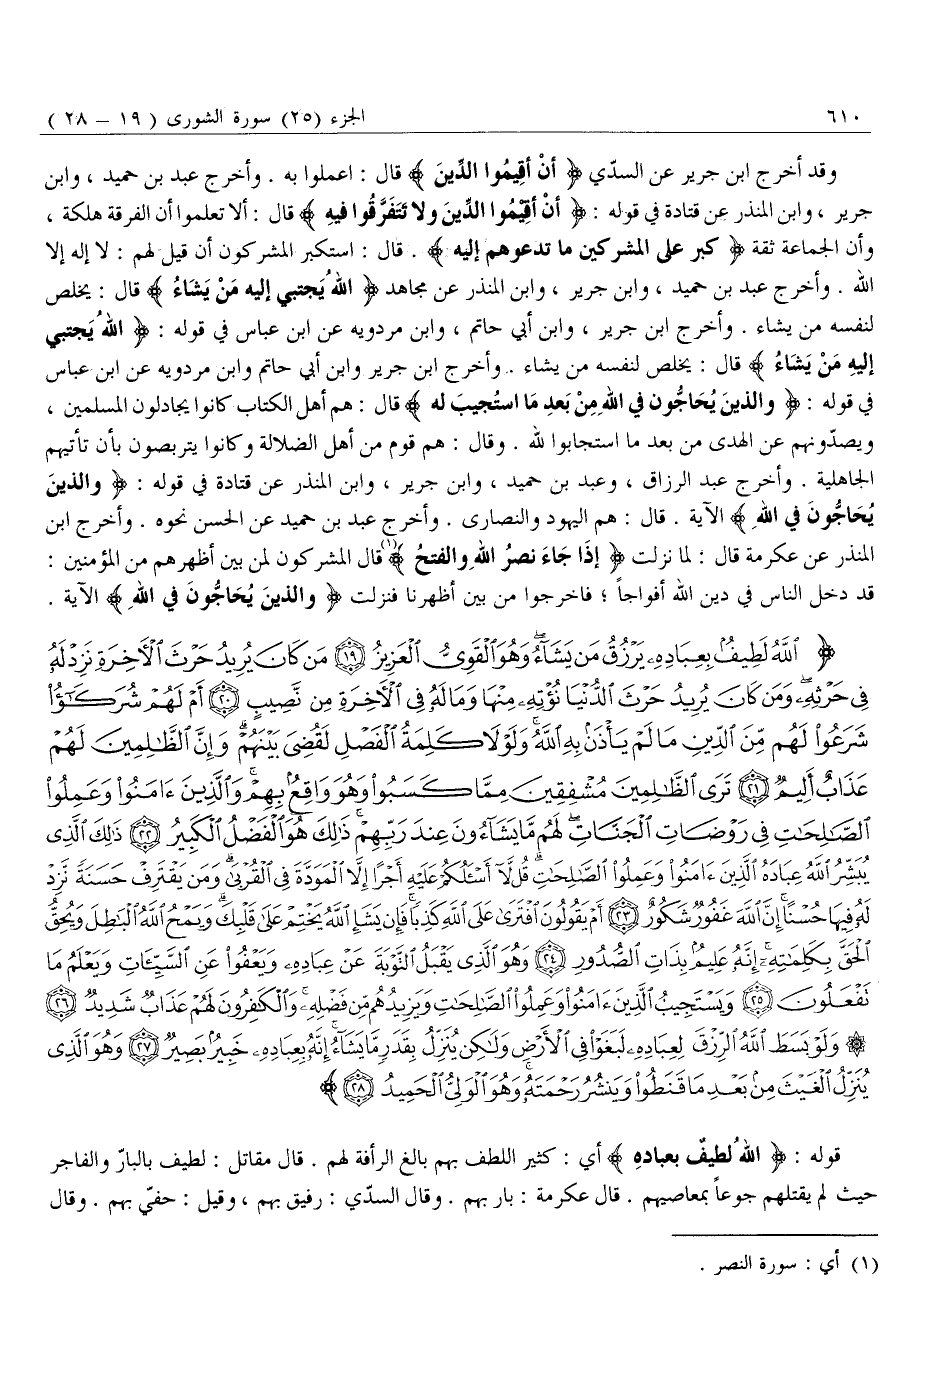 ٦١٠ الجزء (٢٥) سورة الشورى ( ١٩ – ٢٨ )
وقد أخرج ابن جرير عن السدّي ﴿ أنْ أقِيمُوا الدِّينَ ﴾ قال : اعملوا به . وأخرج عبد بن حميد ، وابن
جرير ، وابن المنذر عن قتادة في قوله : ﴿ أنْ أقِيمُوا الدِّينَ ولا تَتَفَرَّقُوا فيهِ ﴾ قال : ألا تعلموا أن الفرقة هلكة ،
وأن الجماعة ثقة ﴿ كبر على المشركين ما تدعوهم إليه ﴾ . قال : استكبر المشركون أن قيل لهم : لا إله إلا
الله . وأخرج عبد بن حميد ، وابن جرير ، وابن المنذر عن مجاهد ﴿ اللهُ يَجتبي إليه مَنْ يَشَاءُ ﴾ قال : يخلص
لنفسه من يشاء . وأخرج ابن جرير ، وابن أبي حاتم ، وابن مردويه عن ابن عباس في قوله : ﴿ اللهُ يَجتبي
إليهِ مَنْ يَشَاءُ ﴾ قال : يخلص لنفسه من يشاء . وأخرج ابن جرير وابن أبي حاتم وابن مردويه عن ابن عباس
في قوله : ﴿ والذينَ يُحَاجُّون في اللهِ مِنْ بَعدِ مَا استُجيبَ له ﴾ قال : هم أهل الكتاب كانوا يجادلون المسلمين ،
ويصدّونهم عن الهدى من بعد ما استجابوا لله . وقال : هم قوم من أهل الضلالة وكانوا يتربصون بأن تأتيهم
الجاهلية . وأخرج عبد الرزاق ، وعبد بن حميد ، وابن جرير ، وابن المنذر عن قتادة في قوله : ﴿ والذينَ
يُحَاجُّونَ في اللهِ ﴾ الآية . قال : هم اليهود والنصارى . وأخرج عبد بن حميد عن الحسن نحوه . وأخرج ابن
المنذر عن عكرمة قال : لما نزلت ﴿ إذَا جَاءَ نصرُ اللهِ والفتحُ ﴾(١) قال المشركون لمن بين أظهرهم من المؤمنين :
قد دخل الناس في دين الله أفواجاً ؛ فاخرجوا من بين أظهرنا فنزلت ﴿ والذينَ يُحَاجُّونَ في اللهِ ﴾ الآية .
﴿ ٱللَّهُ لَطِيفٌۢ بِعِبَادِهِۦ يَرْزُقُ مَن يَشَآءُ ۖ وَهُوَ ٱلْقَوِىُّ ٱلْعَزِيزُ ﴿١٩﴾ مَن كَانَ يُرِيدُ حَرْثَ ٱلْـَٔاخِرَةِ نَزِدْ لَهُۥ
فِى حَرْثِهِۦ ۖ وَمَن كَانَ يُرِيدُ حَرْثَ ٱلدُّنْيَا نُؤْتِهِۦ مِنْهَا وَمَا لَهُۥ فِى ٱلْـَٔاخِرَةِ مِن نَّصِيبٍ ﴿٢٠﴾ أَمْ لَهُمْ شُرَكَٰٓؤُا۟
شَرَعُوا۟ لَهُم مِّنَ ٱلدِّينِ مَا لَمْ يَأْذَنۢ بِهِ ٱللَّهُ ۚ وَلَوْلَا كَلِمَةُ ٱلْفَصْلِ لَقُضِىَ بَيْنَهُمْ ۗ وَإِنَّ ٱلظَّٰلِمِينَ لَهُمْ
عَذَابٌ أَلِيمٌ ﴿٢١﴾ تَرَى ٱلظَّٰلِمِينَ مُشْفِقِينَ مِمَّا كَسَبُوا۟ وَهُوَ وَاقِعٌۢ بِهِمْ ۗ وَٱلَّذِينَ ءَامَنُوا۟ وَعَمِلُوا۟
ٱلصَّٰلِحَٰتِ فِى رَوْضَاتِ ٱلْجَنَّاتِ ۖ لَهُم مَّا يَشَآءُونَ عِندَ رَبِّهِمْ ۚ ذَٰلِكَ هُوَ ٱلْفَضْلُ ٱلْكَبِيرُ ﴿٢٢﴾ ذَٰلِكَ ٱلَّذِى
يُبَشِّرُ ٱللَّهُ عِبَادَهُ ٱلَّذِينَ ءَامَنُوا۟ وَعَمِلُوا۟ ٱلصَّٰلِحَٰتِ ۗ قُل لَّآ أَسْـَٔلُكُمْ عَلَيْهِ أَجْرًا إِلَّا ٱلْمَوَدَّةَ فِى ٱلْقُرْبَىٰ ۗ وَمَن يَقْتَرِفْ حَسَنَةً نَّزِدْ
لَهُۥ فِيهَا حُسْنًا ۚ إِنَّ ٱللَّهَ غَفُورٌ شَكُورٌ ﴿٢٣﴾ أَمْ يَقُولُونَ ٱفْتَرَىٰ عَلَى ٱللَّهِ كَذِبًا ۖ فَإِن يَشَإِ ٱللَّهُ يَخْتِمْ عَلَىٰ قَلْبِكَ ۗ وَيَمْحُ ٱللَّهُ ٱلْبَٰطِلَ وَيُحِقُّ
ٱلْحَقَّ بِكَلِمَٰتِهِۦٓ ۚ إِنَّهُۥ عَلِيمٌۢ بِذَاتِ ٱلصُّدُورِ ﴿٢٤﴾ وَهُوَ ٱلَّذِى يَقْبَلُ ٱلتَّوْبَةَ عَنْ عِبَادِهِۦ وَيَعْفُوا۟ عَنِ ٱلسَّيِّـَٔاتِ وَيَعْلَمُ مَا
نَفْعَلُونَ ﴿٢٥﴾ وَيَسْتَجِيبُ ٱلَّذِينَ ءَامَنُوا۟ وَعَمِلُوا۟ ٱلصَّٰلِحَٰتِ وَيَزِيدُهُم مِّن فَضْلِهِۦ ۚ وَٱلْكَٰفِرُونَ لَهُمْ عَذَابٌ شَدِيدٌ ﴿٢٦﴾
۞ وَلَوْ بَسَطَ ٱللَّهُ ٱلرِّزْقَ لِعِبَادِهِۦ لَبَغَوْا۟ فِى ٱلْأَرْضِ وَلَٰكِن يُنَزِّلُ بِقَدَرٍ مَّا يَشَآءُ ۚ إِنَّهُۥ بِعِبَادِهِۦ خَبِيرٌۢ بَصِيرٌ ﴿٢٧﴾ وَهُوَ ٱلَّذِى
يُنَزِّلُ ٱلْغَيْثَ مِنۢ بَعْدِ مَا قَنَطُوا۟ وَيَنشُرُ رَحْمَتَهُۥ ۚ وَهُوَ ٱلْوَلِىُّ ٱلْحَمِيدُ ﴿٢٨﴾ ﴾
قوله : ﴿ اللهُ لطيفٌ بعبادهِ ﴾ أي : كثير اللطف بهم بالغ الرأفة لهم . قال مقاتل : لطيف بالبارّ والفاجر
حيث لم يقتلهم جوعاً بمعاصيهم . قال عكرمة : بار بهم . وقال السدّي : رفيق بهم ، وقيل : حفيّ بهم . وقال
(١) أي : سورة النصر .